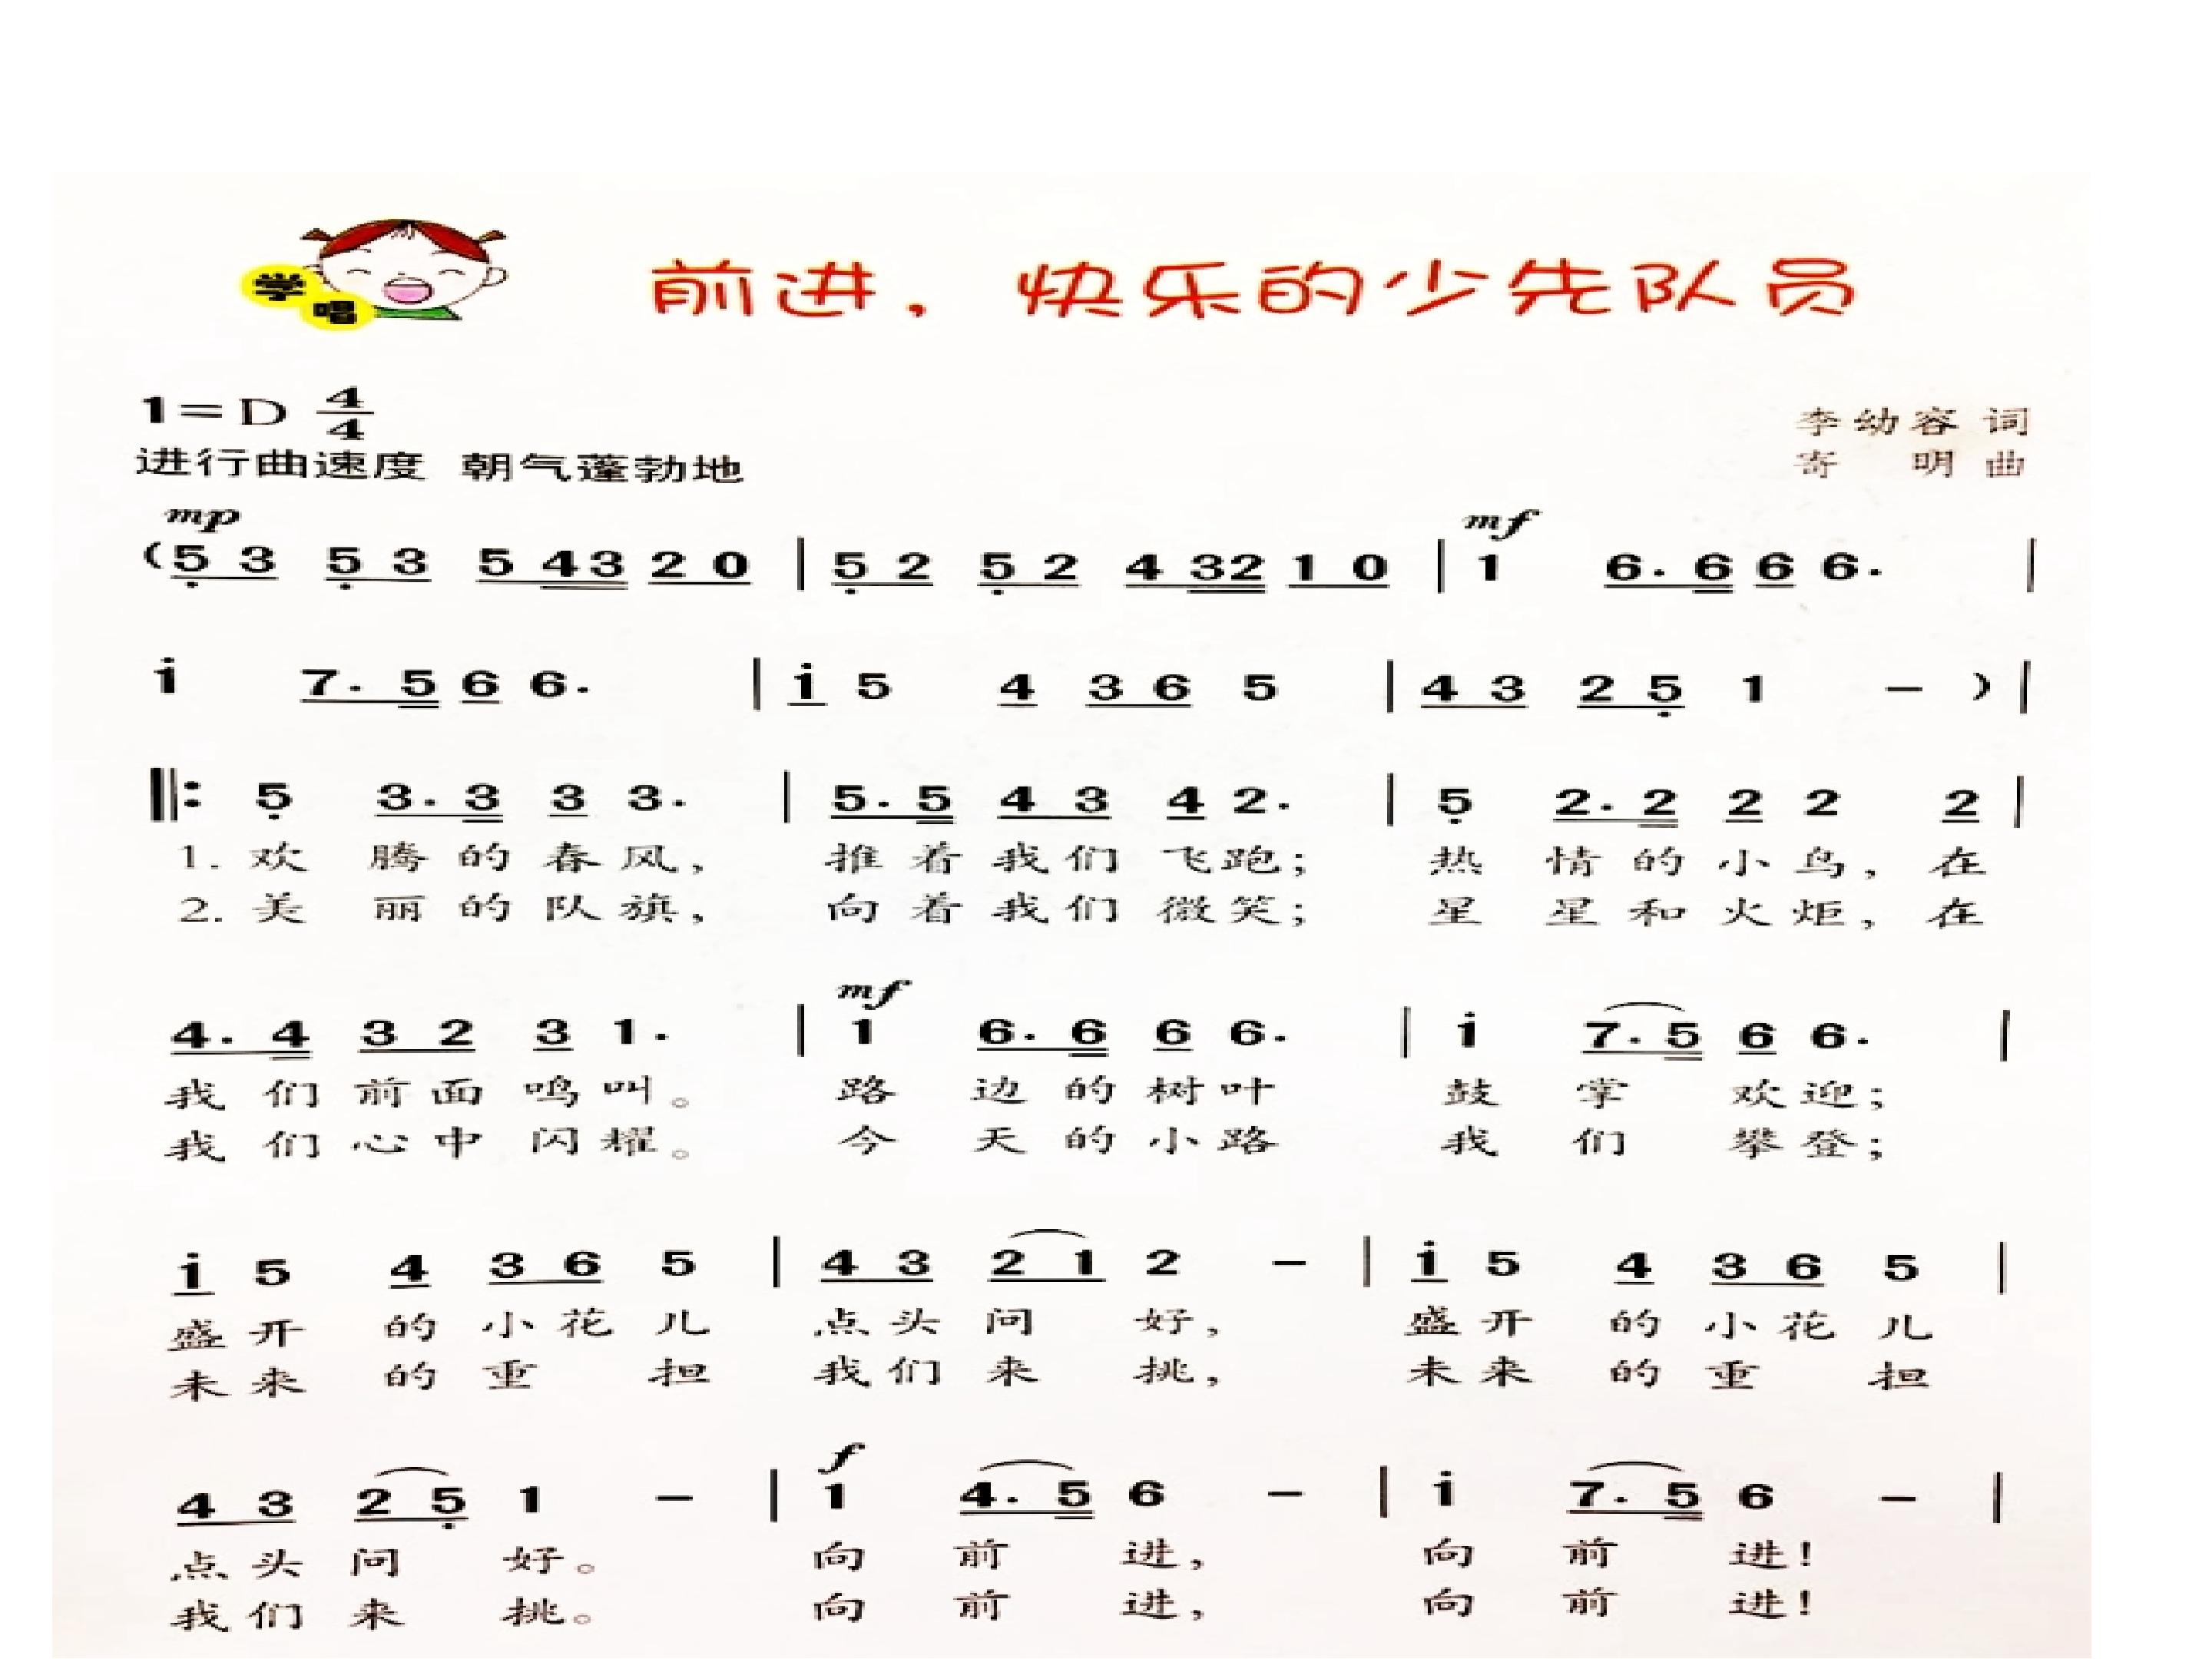 学唱
前进，快乐的少先队员
1=D 4/4
李幼容 词
进行曲速度 朝气蓬勃地
寄 明 曲
mp mf
(5̣ 3 5̣ 3 5 43 2 0 | 5̣ 2 5̣ 2 4 32 1 0 | 1 6. 6 6 6. |
i 7. 5 6 6. | i 5 4 3 6 5 | 4 3 2 5̣ 1 - )|
‖: 5̣ 3. 3 3 3. | 5. 5 4 3 4 2. | 5̣ 2. 2 2 2 2 |
1. 欢 腾 的 春 风， 推 着 我 们 飞 跑； 热 情 的 小 鸟， 在
2. 美 丽 的 队 旗， 向 着 我 们 微 笑； 星 星 和 火 炬， 在
mf
4. 4 3 2 3 1. | 1 6. 6 6 6. | i 7. 5 6 6. |
我 们 前 面 鸣 叫。 路 边 的 树 叶 鼓 掌 欢 迎；
我 们 心 中 闪 耀。 今 天 的 小 路 我 们 攀 登；
i 5 4 3 6 5 | 4 3 2 1 2 - | i 5 4 3 6 5 |
盛 开 的 小 花 儿 点 头 问 好， 盛 开 的 小 花 儿
未 来 的 重 担 我 们 来 挑， 未 来 的 重 担
f
4 3 2 5̣ 1 - | 1 4. 5 6 - | i 7. 5 6 - |
点 头 问 好。 向 前 进， 向 前 进！
我 们 来 挑。 向 前 进， 向 前 进！